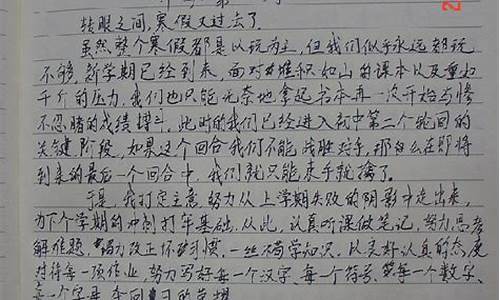 转眼之间,寒假又过去了.
虽然整个寒假都是以玩为主,但我们似乎永远都玩
不够.新学期已经到来,面对堆积如山的课本以及重如
千斤的压力,我们也只能无奈地拿起书本再一次开始与惨
不忍睹的成绩搏斗,此时的我们已经进入初中第二个轮回的
关键阶段,如果这个回合我们不能战胜对手,那么在即将
到来的最后一个回合中,我们就只能束手就擒了.
于是,我打定主意努力从上学期失败的阴影中走出来,
为下个学期的冲刺打牢基础.从此,认真听课做笔记,努力思考
解难题,竭力改正坏习惯,一丝不苟学知识.以良好认真的态度
对待每一项作业,努力写好每一个汉字、每一个符号、每一个数字、
每一个字母.夺回昔日的荣耀